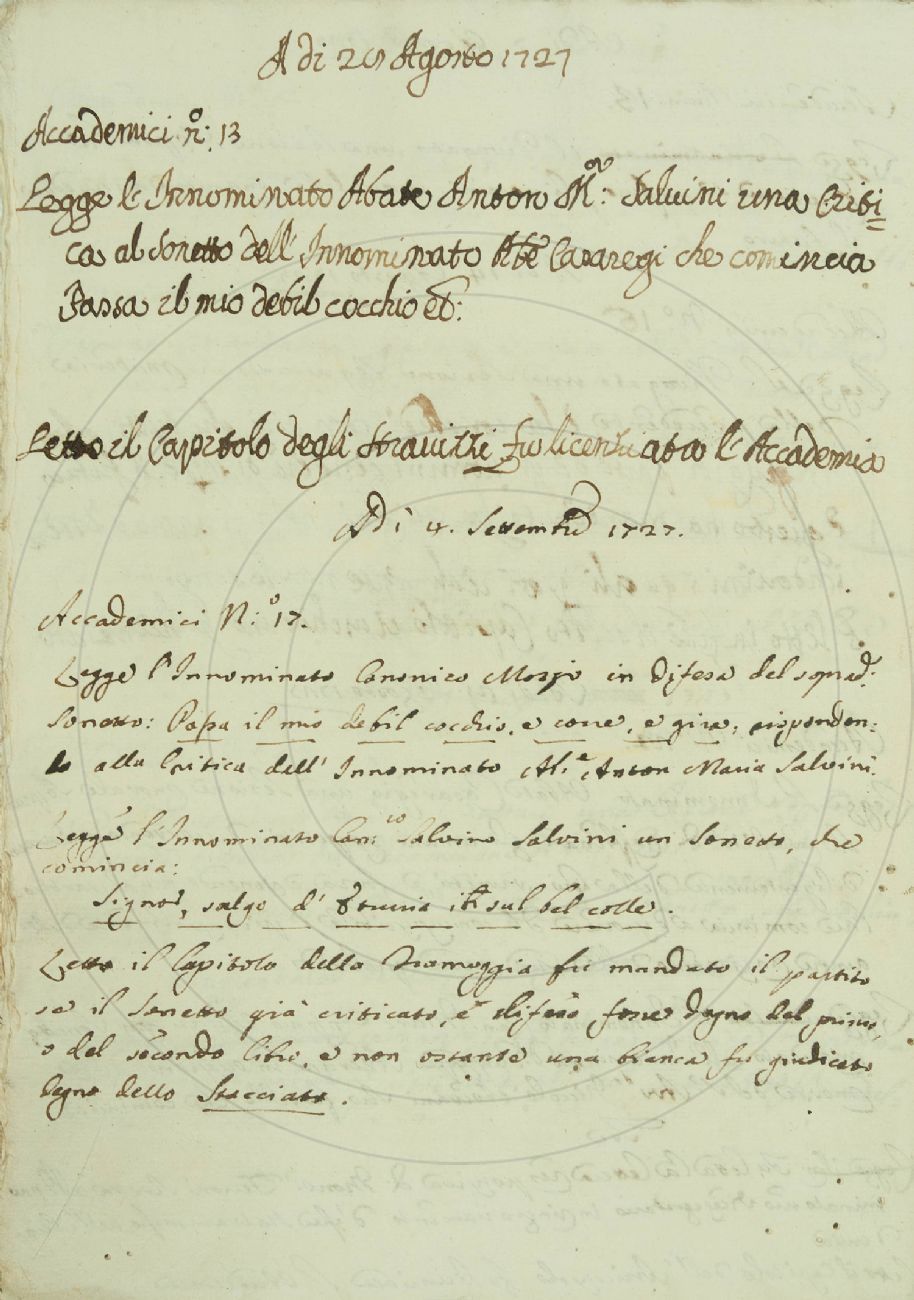 A di 28 Agosto 1727
Accademici n.o: 13
Legge l'Innominato Abate Anton M.a: Salvini una Criti=
ca al Sonetto dell'Innominato Ab.e Casaregi che comincia
Passa il mio debil cocchio et:
Letto il Capitolo degli Stravizzi fu licenziata l'Accademia
A Di 4. Settembre 1727.
Accademici N:o 17.
Legge l'Innominato Canonico Mozzi in difesa del soprad.o:
Sonetto: Passa il mio debil cocchio, e corre, e gira, risponden:
do alla Critica dell'Innominato Ab.e Anton Maria Salvini.
Legge l'Innominato Can:co Salvino Salvini un Sonetto, che
comincia:
Signor, salgo d' sul bel colle.
Letto il Capitolo della Tramoggia fu mandato il partito
se il Sonetto già criticato, e difeso fosse degno del primo,
o del secondo libro, e non ostante una bianca fu giudicato
degno dello Stacciato.